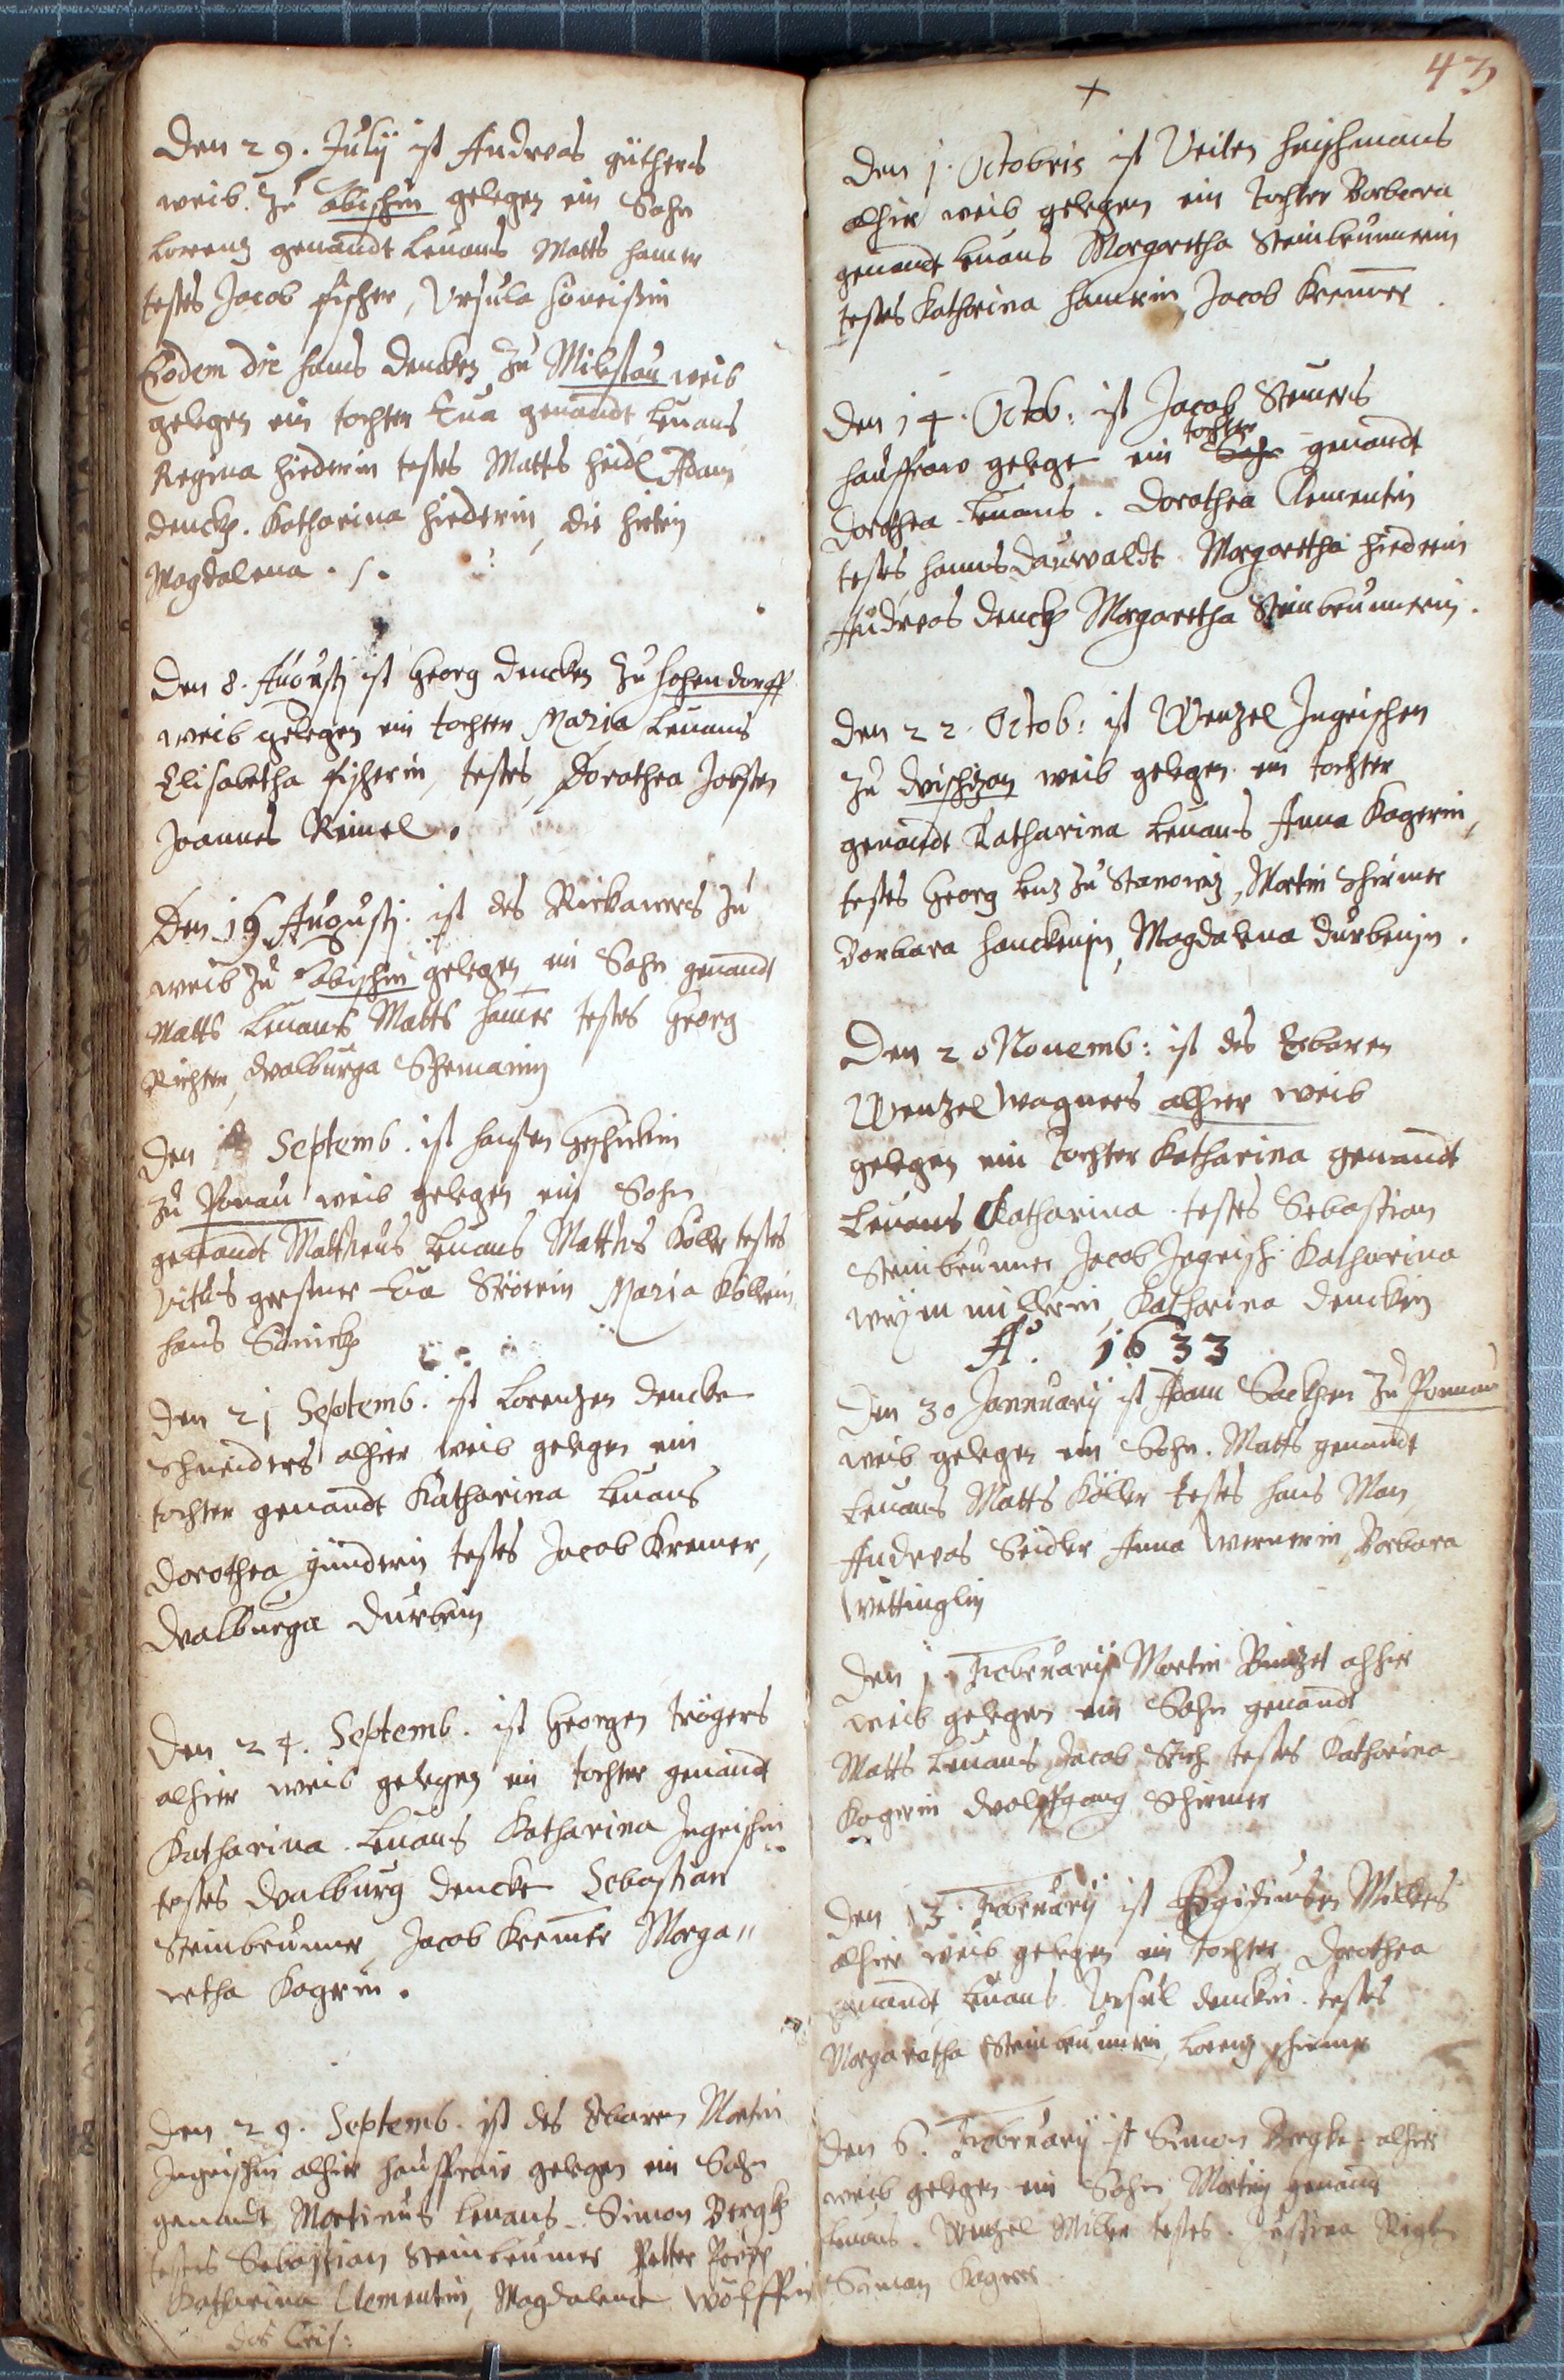 Den 29. Julÿ ist Andreas güthers
weib. Zu gelegen ein Sohn
Lorentz genandt Leuans Matts hamer
testes Jacob fischer, Vrsula
Eodem die hans Dencken Zu Milestau weib
gelegen ein tochter Eua genandt Leuans
Regina hiederin testes Matts heidl Adam
Denck. Katharina hiederin, die hirtin
Magdalena ./.
Den 8. Augusti ist Georg Dencken Zu hohendorff
weib gelegen ein tochter Maria Leuans
Elisabetha fischerin, testes, Dorothea Jobsten
Joannes Reinel.
Den 16 Augusti. ist des Zu
weib Zu gelegen ein Sohn genandt
Matts Leuans Matts hamer testes Georg
Richter, Walburga
Den Septemb. ist hansen
Zu Ponau weib gelegen ein Sohn
genandt Mattheus Leuans Matths Köller testes
Vitus gerstner Eua Maria Köllerin,
hans
Den 21 Septemb. ist Lorenzen Dencke
schneiders alhier weib gelegen ein
tochter genandt Katharina Leuans
Dorothea günderin testes Jacob Kremer,
Walburga
Den 24. Septemb. ist Georgen trögers
alhier weib gelegen ein tochter genandt
Katharina. Leuans Katharina Ingrischin
testes Walburg Dencke Sebastian
Steinbrunner, Jacob Kremer Marga"
retha Kagerin.
Den 29. Septemb. ist des Erbaren Martin
Ingrischen alhier hausfraw gelegen ein Sohn
genandt Martinus Leuans Simon Bergk
testes Sebastian Steinbrunner Petter
Katharina Clementin, Magdalena Wolffin
43
Den 1. Octobris ist Veiten
alhier weib gelegen ein tochter Barbara
genandt Leuans Margaretha Steinbrunnerin
testes Katharina hamerin, Jacob Kremer
Den 14. Octob: ist Jacob Steiners
hausfraw gelegen ein tochter genandt
Dorothea Leuans. Dorothea Clementin
testes, hanns Dauwaldt Margaretha hiederin
Andreas Denck Margaretha Steinbrunnerin.
Den 22. Octob: ist Wenzel Ingrischen
Zu weib gelegen ein tochter
genandt Catharina Leuans Anna Kagerin,
testes Georg Lentz Zu Stanowitz, Martin Schirmer
Barbara, Magdalena.
Den 20 Nouemb: ist des Erbaren
Wenzel Wagners alhier weib
gelegen ein tochter Katharina genandt
Leuans Catharina testes Sebastian
Steinbrunner, Jacob Ingrisch. Katharina
millerin, Katharina Denckin
Aº. 1633
Den 30 Januarÿ ist Adam Zu Ponnau
weib gelegen ein Sohn. Matts genandt
Leuans Matts Köller testes hans Man,
Andreas Seidler Anna Wernerin, Barbara
Den 1. Februarÿ Martin alhier
weib gelegen ein Sohn genandt
Matts Leuans Jacob testes Katharina
Kagerin Wolfgang Schirmer
Den 3. Februarÿ ist Egidiussen Millers
alhier weib gelegen ein tochter Dorothea
genandt, Leuans. Vrsul Denckin. testes
Margaretha Steinbrunnerin, Lorentz schirmer
Den 6. Februarÿ ist Simon Bergk alhier
weib gelegen ein Sohn Martin genandt
Leuans. Wenzel Miller testes. Justina
Simon Kagerer